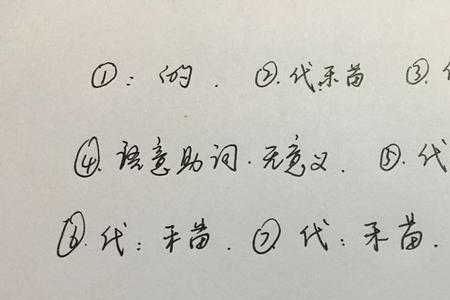 ①：的．②．代禾苗 ③．
④．语意助词．无意义．⑤．代
⑥．代：禾苗．⑦．代：禾苗．